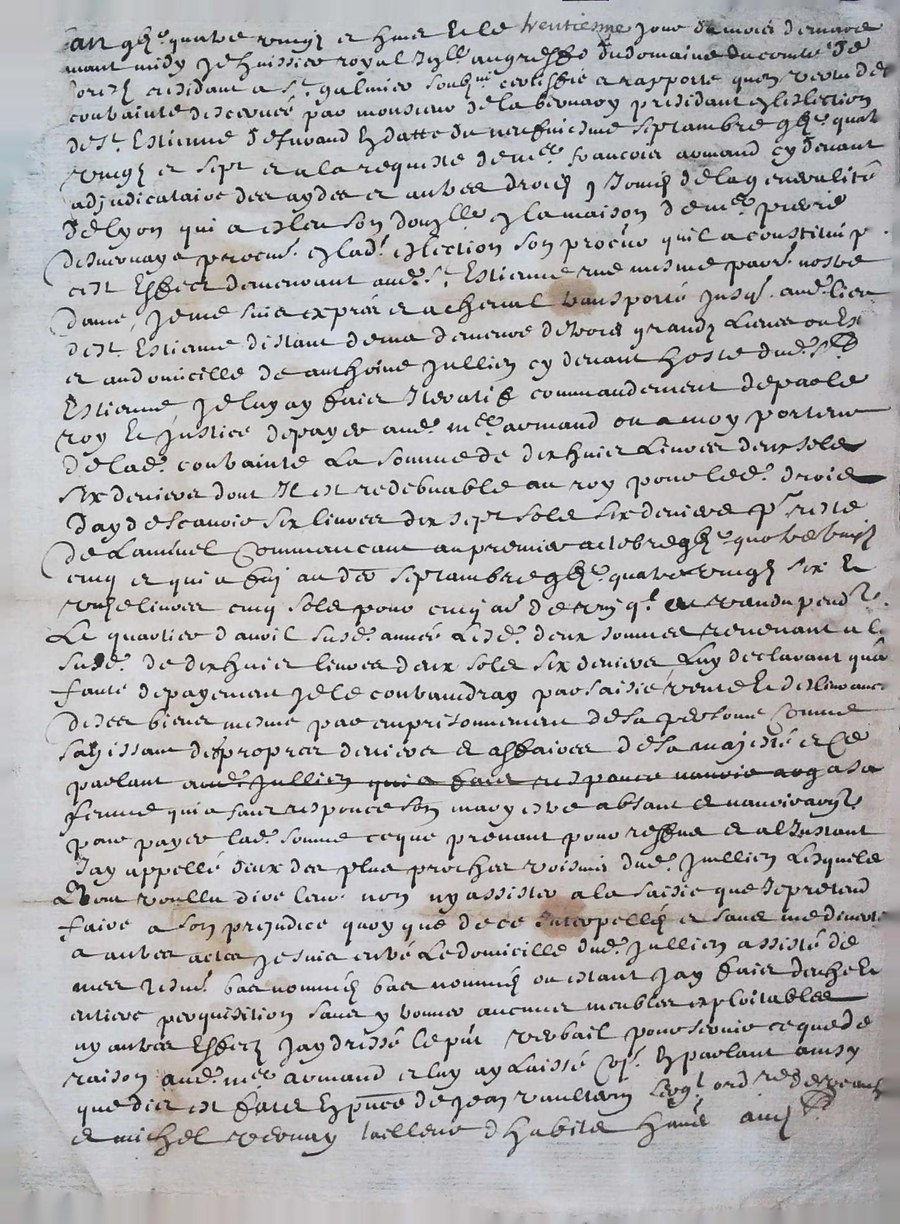 Lan gbjc quatre vingt et huit et le trentienne jour du mois de mars
avant midy je huissier royal au greffe du domaine du comté de
forestz residant a St galmier soubné certiffie et rapporte quen vertu de
contrainte descernée par monsieur de la bernary presidant en leslection
de St Estienne de furand en datte du septambre gbjc quat
vingt et sept et a la requeste de Me francois armand cy devant
adjudicataire des aydes et autres droitz y joincts de la generalité
de lyon qui a esleu son domille en la maison de Me pierre
desvernays procur en lad eslection son procur quil a constitué p
cest effect demeurant aud St Estienne rue nostre
dame, je me suis exprés et a cheval transporté jusq aud lieu
de St Estienne distant de ma demeure de trois grandz lieues ou est
et au domicille de anthoine Jullien cy devant hoste dud St
Estienne, je luy ay faict iteratif commandement de par le
roy et justice de payer aud Me armand ou a moy porteur
de lad contrainte la somme de dix huict livres deux sols
six deniers dont il est redebvable au roy pour led droict
dayd escavoir six livres dix sept sols six deniers pr reste
de lannuel commancant au premier octobre gbjc quatre vingt
cinq et qui a fini au der septambre gbjc quatre vingt six et
unze livres cinq sols pour cinq de vin ql a vendu pendt
le quartier davril susd année lesd deux sommes revenant a la
susd de dix huict livres deux sols six deniers luy declarant qua
faute de payement je le contraindray par saisie vente et deslivrance
de ses biens mesme par emprisonnement de sa personne comme
sagissant des propres deniers et affaires de sa majesté et ce
parlant aud Jullien qui a faict responce navoir arg a sa
femme qui a fait responce son mary estre absant et navoir argt
pour payer lad somme ce que prenant pour reffus et a linstant
jay appellé deux des plus proches voisins dud Jullien lesquels
nont voullu dire leur nom ny assister a la saisie que je pretend
faire a son prejudice quoy que de ce interpellés et sans me divertir
a autres actes je suis entré le domicille dud Jullien assisté de
mes tesmi bas nommés bas nommés ou estant jay faict derche et
entiere perquisition sans y trouver aucuns meubles exploitables
ny autres effectz jay dressé le pnt verbail pour servir ce que de
raison aud Me armand et luy ay laissé cop en parlant ainsy
que dict est faict en pnce de Jean
et michel vernay tailleur dhabits